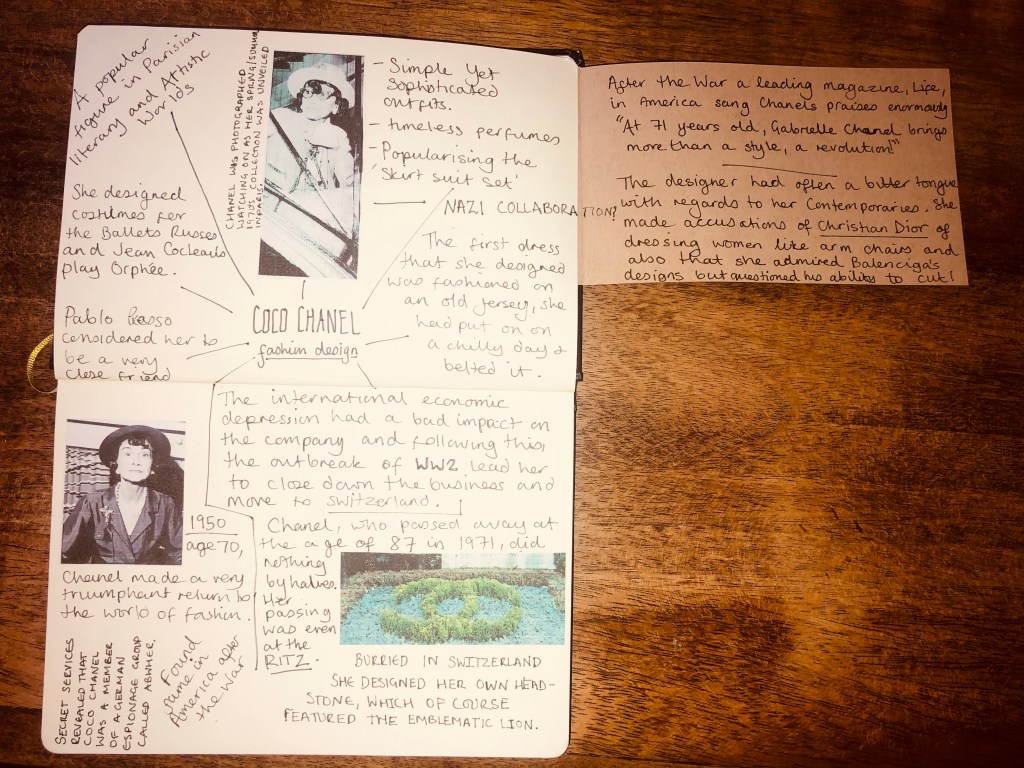 A popular
figure in Parisian
literary and Artistic
Worlds
CHANEL WAS PHOTOGRAPHED
WATCHING ON AS HER SPRING/SUMMER
1970'S COLLECTION WAS UNVEILED
IN PARIS.
- Simple Yet
Sophisticated
outfits.
- timeless perfumes
- Popularising the
'Skirt suit set'
NAZI COLLABORATION?
She designed
costumes for
the Ballets Russes
and Jean Cocteau's
play Orphée.
The first dress
that she designed
was fashioned on
an old jersey, she
had put on on
a chilly day &
belted it.
COCO CHANEL
fashion design
Pablo Picasso
considered her to
be a very
close friend
After the War a leading magazine, Life,
in America sang Chanels praises enormously
"At 71 years old, Gabrielle Chanel brings
more than a style, a revolution!"
The designer had often a bitter tongue
with regards to her Contemporaries. She
made accusations of Christian Dior of
dressing women like arm chairs and
also that she admired Balenciga's
designs but questioned his ability to cut!
The international economic
depression had a bad impact on
the company and following this,
the outbreak of WW2 lead her
to close down the business and
move to Switzerland.
1950
age 70,
Chanel made a very
triumphant return to
the world of fashion.
Chanel, who passed away at
the age of 87 in 1971, did
nothing
by halves.
Her
passing
was even
at the
RITZ.
SECRET SERVICES
REVEALED THAT
COCO CHANEL
WAS A MEMBER
OF A GERMAN
ESPIONAGE GROUP
CALLED ABWHER.
Found
fame in
America after
the war
BURRIED IN SWITZERLAND
SHE DESIGNED HER OWN HEAD-
STONE, WHICH OF COURSE
FEATURED THE EMBLEMATIC LION.